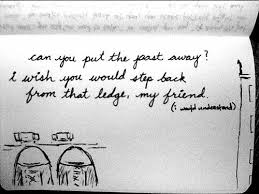 can you put the past away?
I wish you would step back
from that ledge, my friend.
(i would understand)